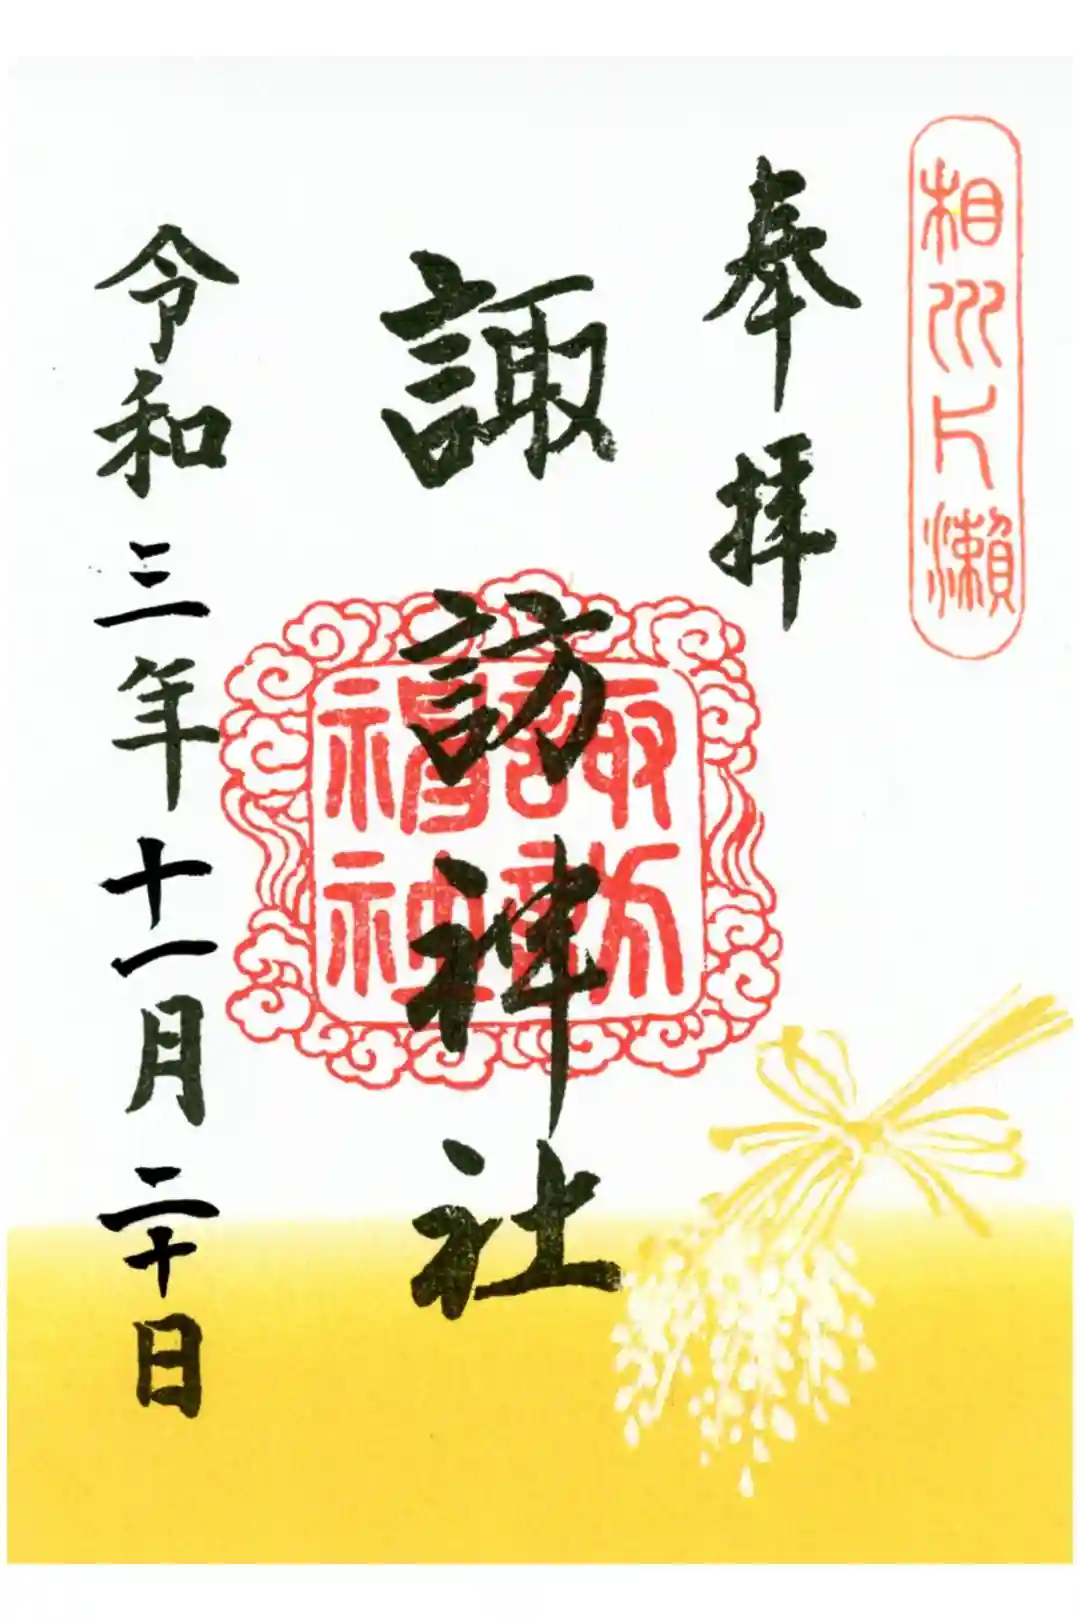 相州片瀬
奉拝
諏訪神社
諏訪
神社
令和三年十一月二十日